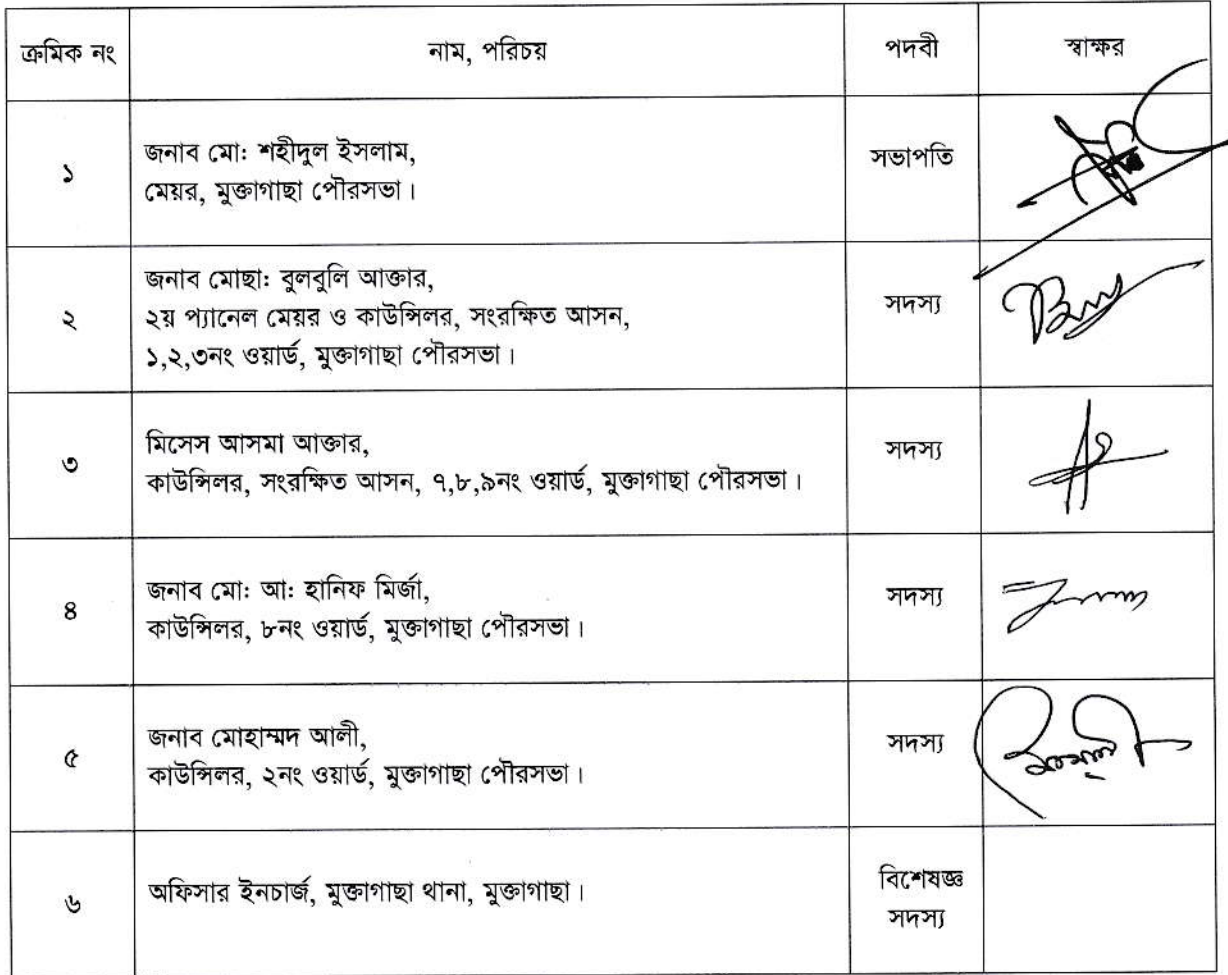 ক্রমিক নং নাম, পরিচয় পদবী স্বাক্ষর
১ জনাব মো: শহীদুল ইসলাম, সভাপতি
মেয়র, মুক্তাগাছা পৌরসভা।
জনাব মোছা: বুলবুলি আক্তার,
২ ২য় প্যানেল মেয়র ও কাউন্সিলর, সংরক্ষিত আসন, সদস্য
১,২,৩নং ওয়ার্ড, মুক্তাগাছা পৌরসভা।
৩ মিসেস আসমা আক্তার, সদস্য
কাউন্সিলর, সংরক্ষিত আসন, ৭,৮,৯নং ওয়ার্ড, মুক্তাগাছা পৌরসভা।
৪ জনাব মো: আ: হানিফ মির্জা, সদস্য
কাউন্সিলর, ৮নং ওয়ার্ড, মুক্তাগাছা পৌরসভা।
৫ জনাব মোহাম্মদ আলী, সদস্য
কাউন্সিলর, ২নং ওয়ার্ড, মুক্তাগাছা পৌরসভা।
৬ অফিসার ইনচার্জ, মুক্তাগাছা থানা, মুক্তাগাছা। বিশেষজ্ঞ
সদস্য